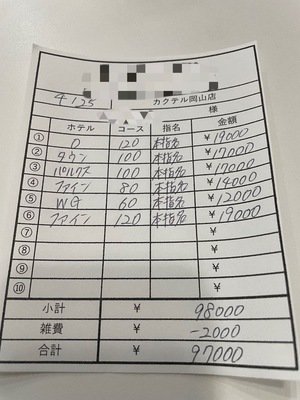 4/25 カクテル岡山店
様
ホテル コース 指名 金額
① O 120 本指名 ¥19000
② タウン 100 本指名 ¥17000
③ パルクス 100 本指名 ¥17000
④ ファイン 80 本指名 ¥14000
⑤ WG 60 本指名 ¥12000
⑥ ファイン 120 本指名 ¥19000
⑦ ¥
⑧ ¥
⑨ ¥
⑩ ¥
小計 ¥ 98000
雑費 ¥ -2000
合計 ¥ 97000